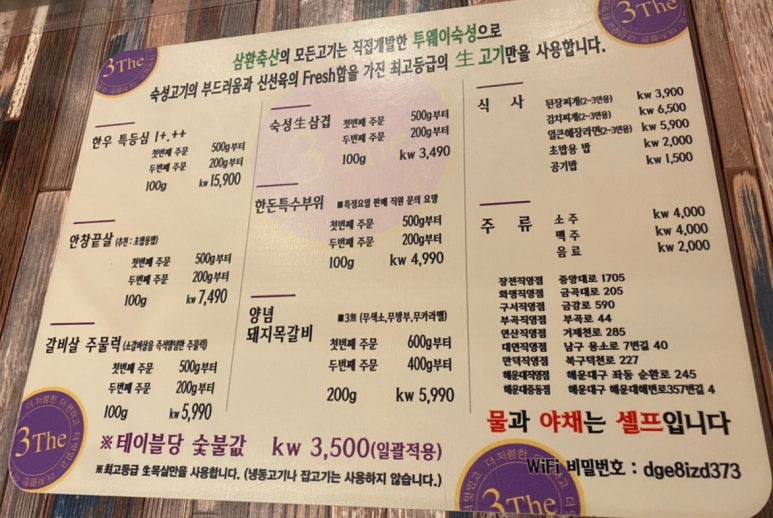 3The
3The
삼환축산의 모든고기는 직접개발한 투웨이숙성으로
숙성고기의 부드러움과 신선육의 Fresh함을 가진 최고등급의 生 고기만을 사용합니다.
한우 특등심 1+.++
첫번째 주문 500g부터
두번째 주문 200g부터
100g kw 15,900
안창끝살 (추천 : 초밥용밥)
첫번째 주문 500g부터
두번째 주문 200g부터
100g kw 7,490
갈비살 주물럭 (소갈비살을 즉석양념한 주물럭)
첫번째 주문 500g부터
두번째 주문 200g부터
100g kw 5,990
숙성生삼겹
첫번째 주문 500g부터
두번째 주문 200g부터
100g kw 3,490
한돈특수부위 ■특정요일 판매 직원 문의 요망
첫번째 주문 500g부터
두번째 주문 200g부터
100g kw 4,990
양념
돼지목갈비 ■3無 (무색소,무방부,무카라멜)
첫번째 주문 600g부터
두번째 주문 400g부터
200g kw 5,990
식 사
된장찌개(2~3인용) kw 3,900
김치찌개(2~3인용) kw 6,500
얼큰해장라면(2~3인용) kw 5,900
초밥용 밥 kw 2,000
공기밥 kw 1,500
주 류
소 주 kw 4,000
맥 주 kw 4,000
음 료 kw 2,000
장전직영점 중앙대로 1705
화명직영점 금곡대로 205
구서직영점 금강로 590
부곡직영점 부곡로 44
연산직영점 거제천로 285
대연직영점 남구 용소로 7번길 40
만덕직영점 북구덕천로 227
해운대직영점 해운대구 좌동 순환로 245
해운대중동점 해운대구 해운대해변로357번길 4
물과 야채는 셀프입니다
※테이블당 숯불값 kw 3,500(일괄적용)
※최고등급 生목살만을 사용합니다. (냉동고기나 잡고기는 사용하지 않습니다.)
WiFi 비밀번호 : dge8izd373
3The
3The